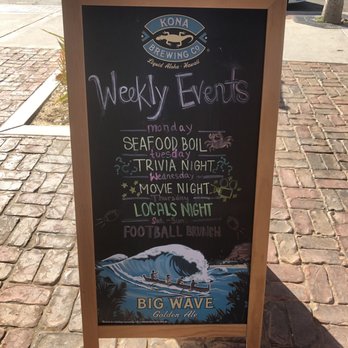 KONA
BREWING CO
Liquid Aloha · Hawaii
Weekly Events
monday
SEAFOOD BOIL
tuesday
TRIVIA NIGHT
Wednesday
MOVIE NIGHT
Thursday
LOCALS NIGHT
Sat. - Sun.
FOOTBALL BRUNCH
BIG WAVE
Golden Ale